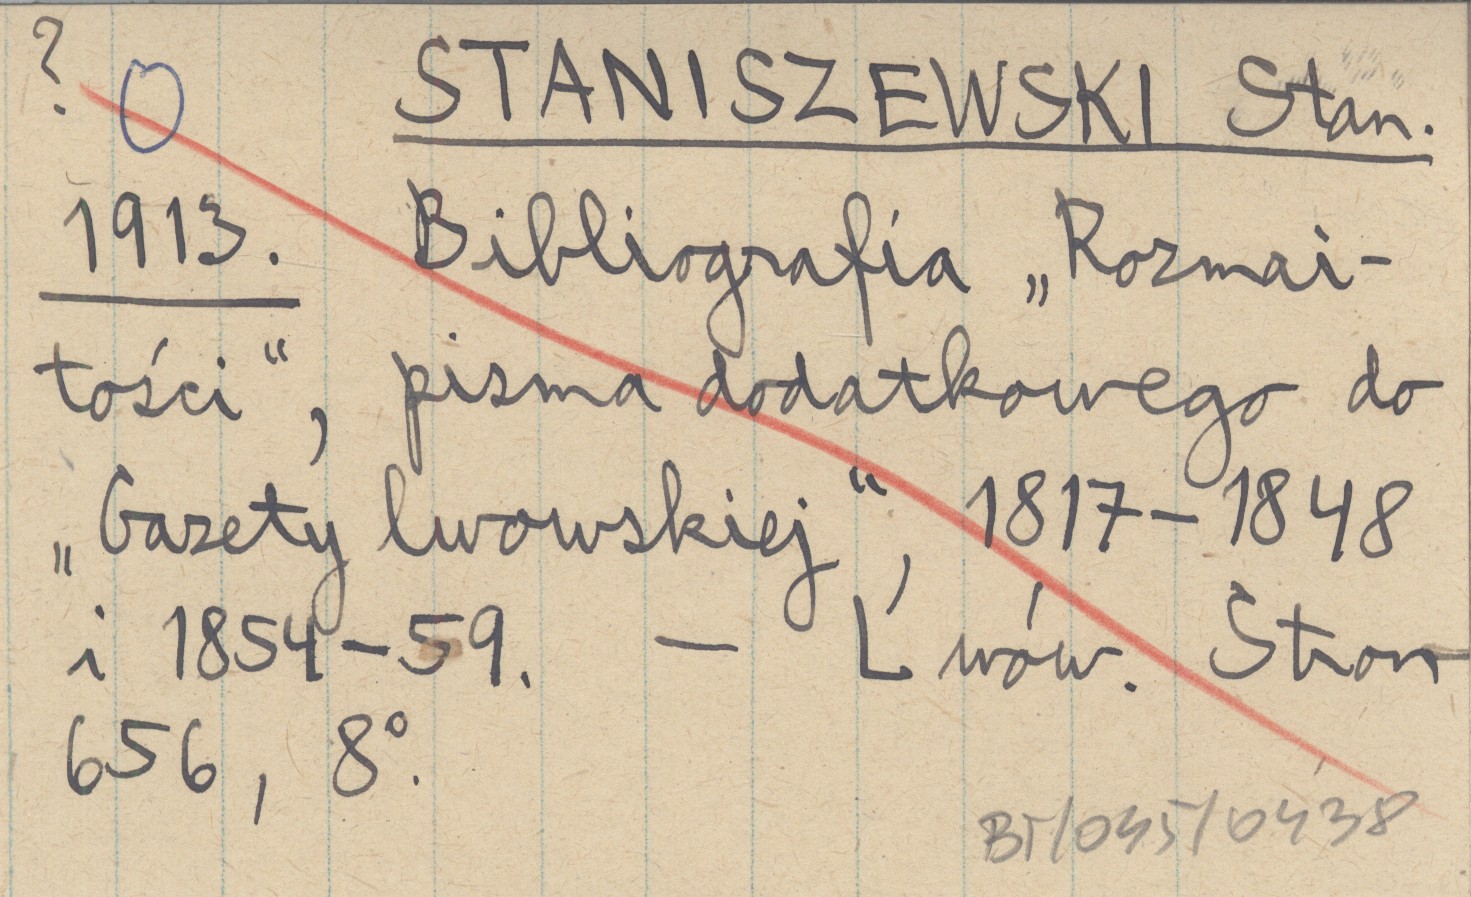 ? O STANISZEWSKI Stan.
1913. Bibliografia „Rozmai-
tości“, pisma dodatkowego do
„Gazety lwowskiej“, 1817–1848
i 1854–59. — Lwów. Stron
656, 8°.